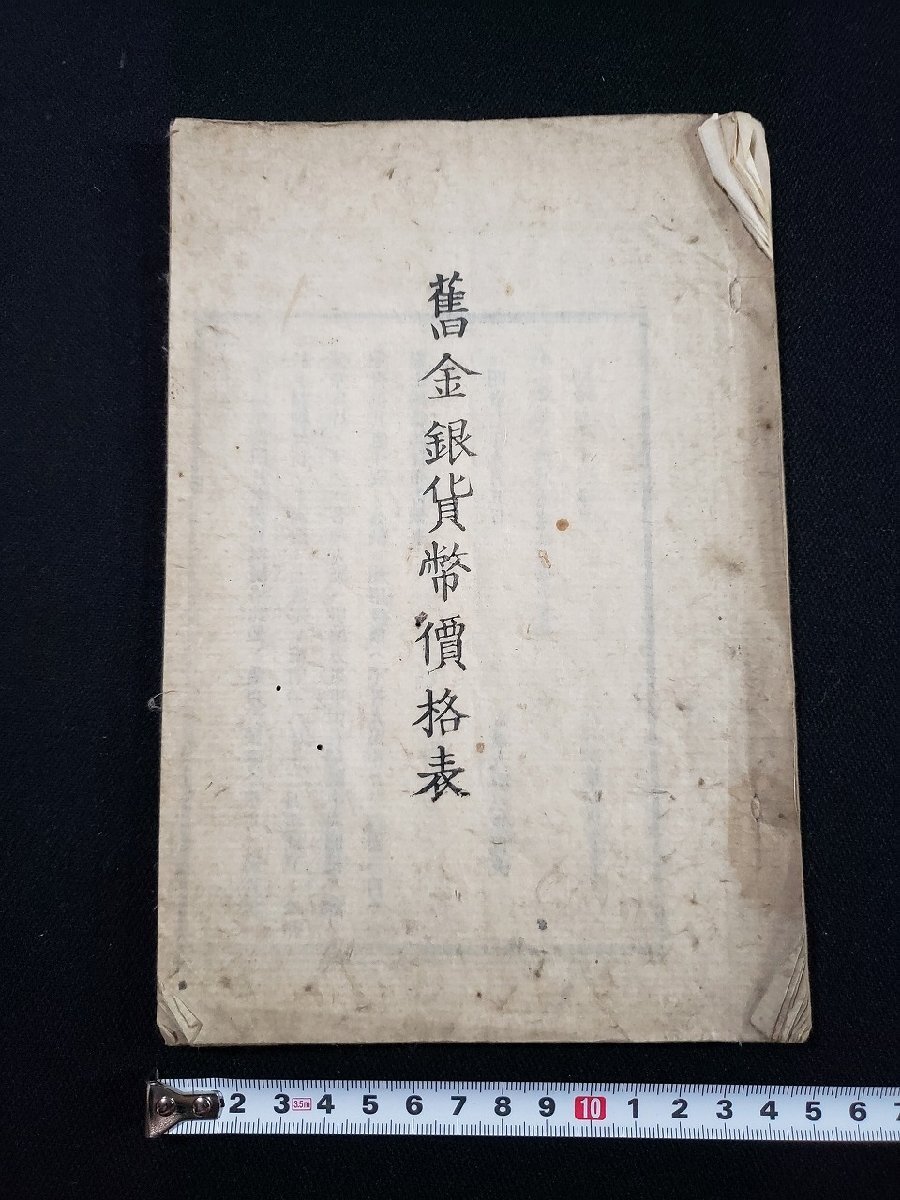 舊金銀貨幣價格表
2 3 3.5m 4 5 6 7 8 9 10 1 2 3 4 5 6 7